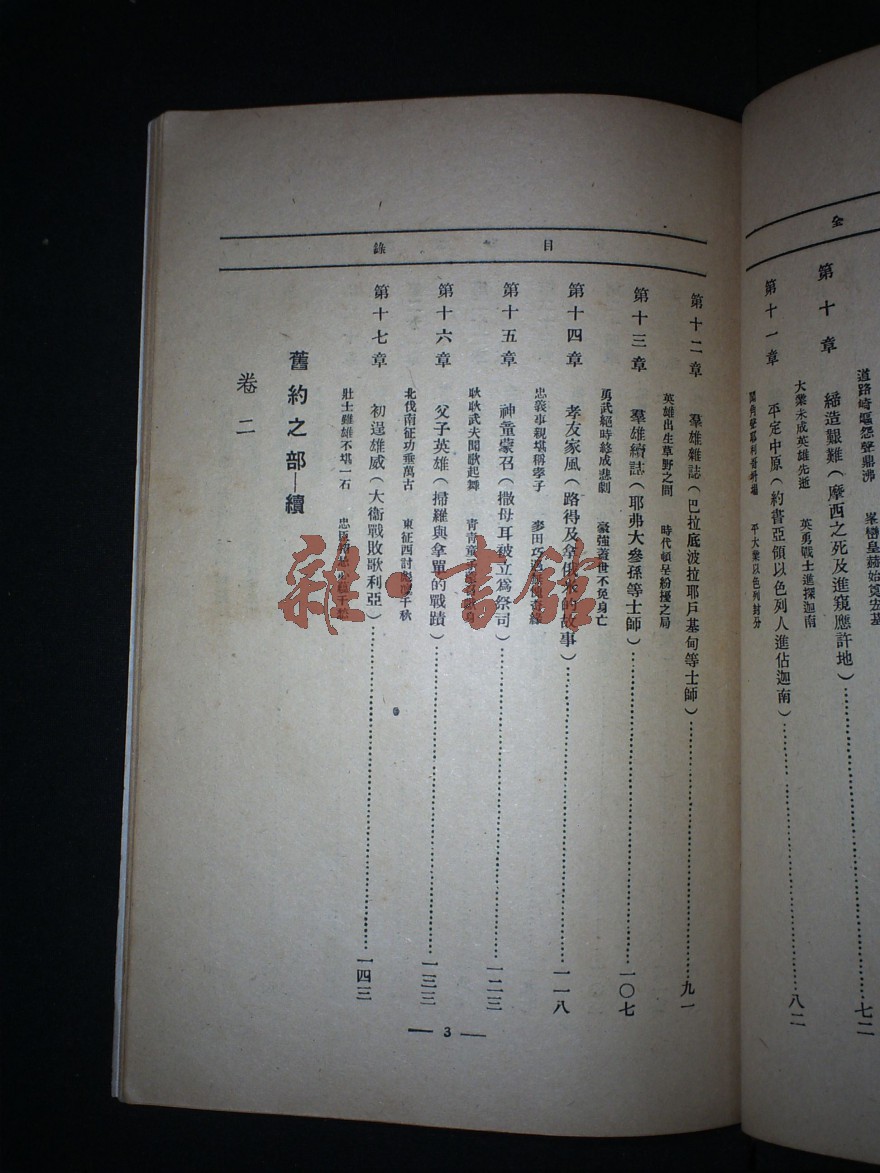 全
道路崎嶇怨聲鼎沸
第十章　締造艱難(摩西之死及進窺應許地)……七二
大業未成英雄先逝　英勇戰士進探迦南
第十一章　平定中原(約書亞領以色列人進佔迦南)……八二
平大業以色列封分
目錄
第十二章　羣雄雜誌(巴拉底波拉耶戶基甸等士師)……九一
英雄出生草野之間　時代頓呈紛擾之局
第十三章　羣雄續誌(耶弗大參孫等士師)……一〇七
勇武絕時終成悲劇　豪強蓋世不免身亡
第十四章　孝友家風(路得及拿俄米的故事)……一一八
忠義事親堪稱孝子　麥田巧遇
第十五章　神童蒙召(撒母耳被立爲祭司)……一二三
耿耿武夫聞歌起舞　青青童子
第十六章　父子英雄(掃羅與拿單的戰蹟)……一三三
北伐南征功垂萬古　東征西討　千秋
第十七章　初逞雄威(大衞戰敗歌利亞)……一四三
壯士雖雄不堪一石　忠臣
舊約之部—續
卷二
— 3 —
雜·書館